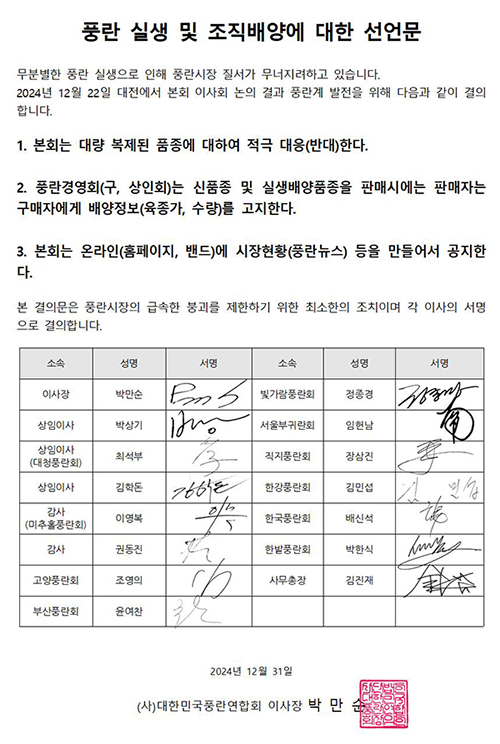 풍란 실생 및 조직배양에 대한 선언문
무분별한 풍란 실생으로 인해 풍란시장 질서가 무너지려하고 있습니다.
2024년 12월 22일 대전에서 본회 이사회 논의 결과 풍란계 발전을 위해 다음과 같이 결의
합니다.
1. 본회는 대량 복제된 품종에 대하여 적극 대응(반대)한다.
2. 풍란경영회(구, 상인회)는 신품종 및 실생배양품종을 판매시에는 판매자는
구매자에게 배양정보(육종가, 수량)를 고지한다.
3. 본회는 온라인(홈페이지, 밴드)에 시장현황(풍란뉴스) 등을 만들어서 공지한
다.
본 결의문은 풍란시장의 급속한 붕괴를 제한하기 위한 최소한의 조치이며 각 이사의 서명
으로 결의합니다.
소속 성명 서명 소속 성명 서명
이사장 박만순 빛가람풍란회 정종경
상임이사 박상기 서울부귀란회 임헌남
상임이사
(대청풍란회) 최석부 직지풍란회 장삼진
상임이사 김학돈 한강풍란회 김민섭
감사
(미추홀풍란회) 이영복 한국풍란회 배신석
감사 권동진 한밭풍란회 박한식
고양풍란회 조영의 사무총장 김진재
부산풍란회 윤여찬
2024년 12월 31일
(사)대한민국풍란연합회 이사장 박 만 순